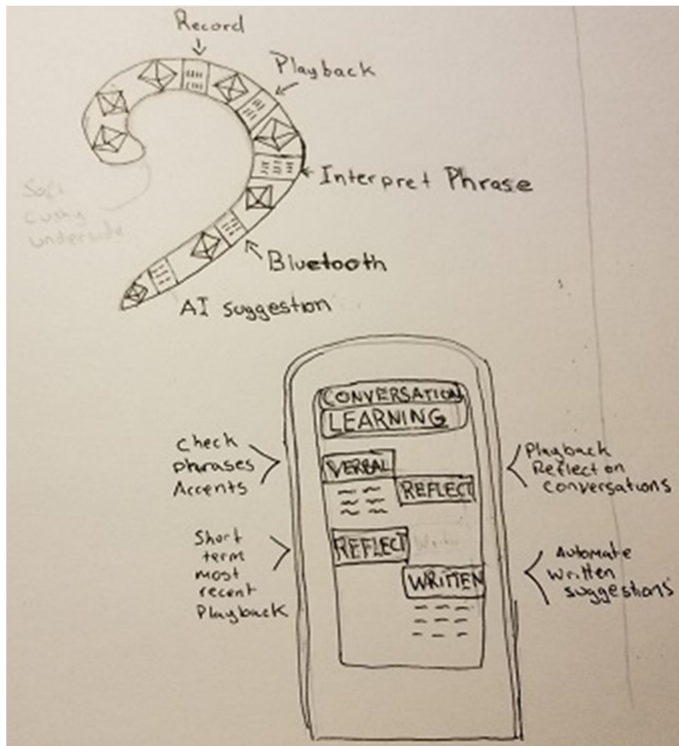 Record
Playback
Interpret Phrase
Soft
cushy
underside
Bluetooth
AI suggestion
CONVERSATION
LEARNING
Check
phrases
Accents
VERBAL
REFLECT
Playback
Reflect on
conversations
Short
term
most
recent
Playback
REFLECT
WRITTEN
Automate
written
suggestions